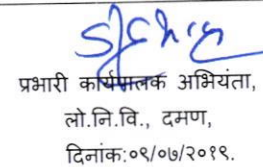 प्रभारी कार्यपालक अभियंता,
लो.नि.वि., दमण,
दिनांक:०९/०७/२०१९.